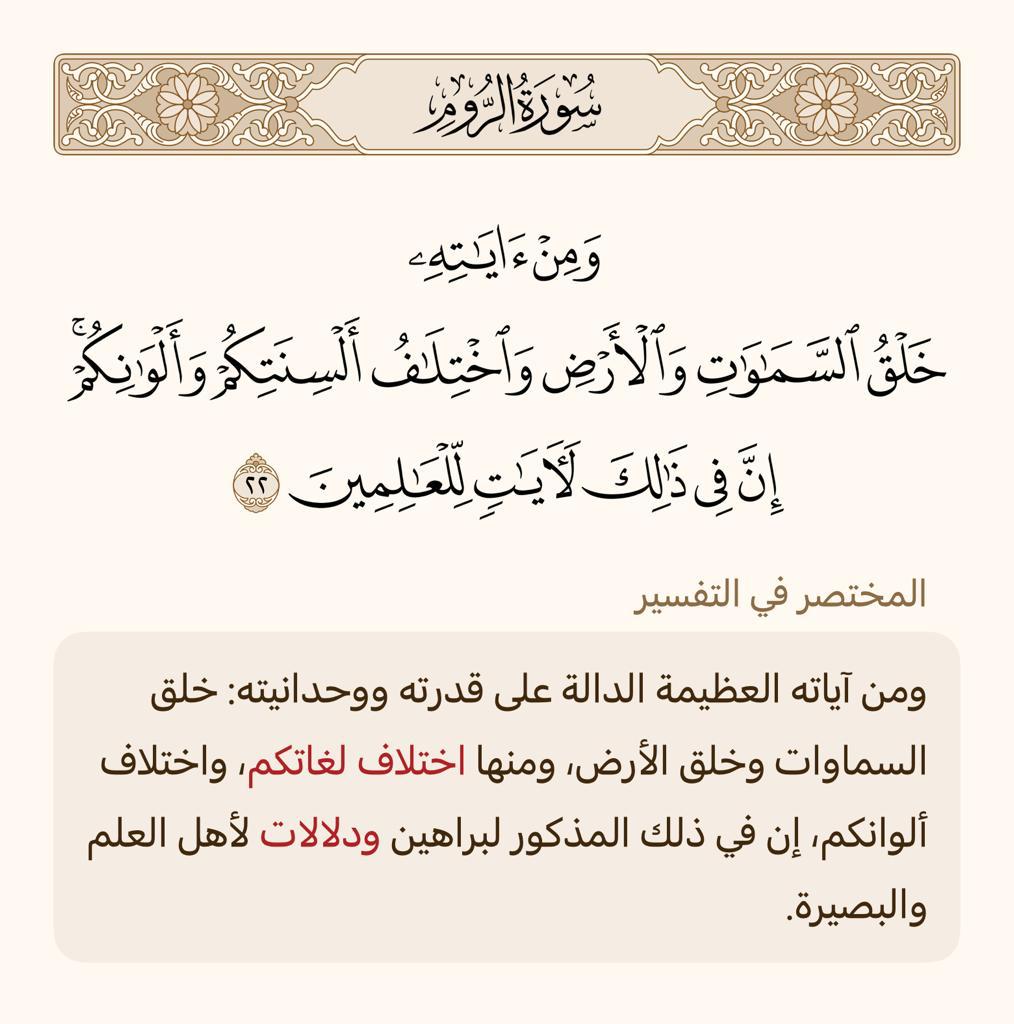 سُورَةُ الرُّومِ
وَمِنْ ءَايَٰتِهِۦ
خَلْقُ ٱلسَّمَٰوَٰتِ وَٱلْأَرْضِ وَٱخْتِلَٰفُ أَلْسِنَتِكُمْ وَأَلْوَٰنِكُمْۚ
إِنَّ فِى ذَٰلِكَ لَءَايَٰتٍ لِّلْعَٰلِمِينَ ٢٢
المختصر في التفسير
ومن آياته العظيمة الدالة على قدرته ووحدانيته: خلق
السماوات وخلق الأرض، ومنها اختلاف لغاتكم، واختلاف
ألوانكم، إن في ذلك المذكور لبراهين ودلالات لأهل العلم
والبصيرة.